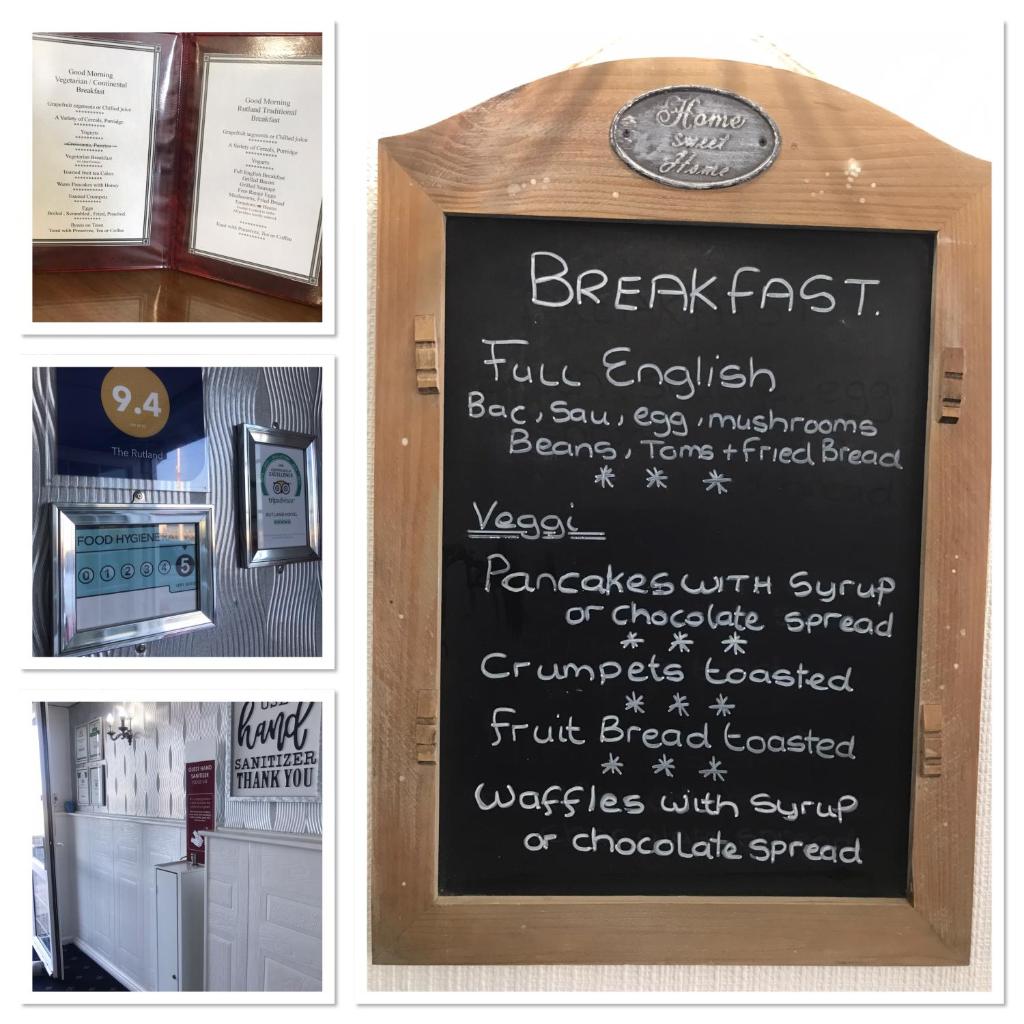 Good Morning
Vegetarian / Continental
Breakfast
Grapefruit segments or Chilled juice
**********
A Variety of Cereals, Porridge
**********
Yogurts
**********
Croissants, Pastries
**********
Vegetarian Breakfast
**********
Toasted fruit tea Cakes
**********
Warm Pancakes with Honey
**********
Toasted Crumpets
**********
Eggs
Boiled, Scrambled, Fried, Poached
**********
Beans on Toast
Toast with Preserves, Tea or Coffee
Good Morning
Rutland Traditional
Breakfast
Grapefruit segments or Chilled juice
**********
A Variety of Cereals, Porridge
**********
Yogurts
**********
Full English Breakfast
Grilled Bacon
Grilled Sausage
Free Range Eggs
Mushrooms, Fried Bread
Tomatoes, Beans
**********
Toast with Preserves, Tea or Coffee
9.4
The Rutland
FOOD HYGIENE
0 1 2 3 4 5
VERY GOOD
CERTIFICATE of
EXCELLENCE
tripadvisor
RUTLAND HOTEL
USE
hand
SANITIZER
THANK YOU
GUEST HAND
SANITIZER
Home
Sweet
Home
BREAKFAST.
Full English
Bac, Sau, egg, mushrooms
Beans, Toms + Fried Bread
* * *
Veggi
Pancakes with Syrup
or chocolate spread
* * *
Crumpets toasted
* * *
Fruit Bread toasted
* * *
Waffles with Syrup
or chocolate spread